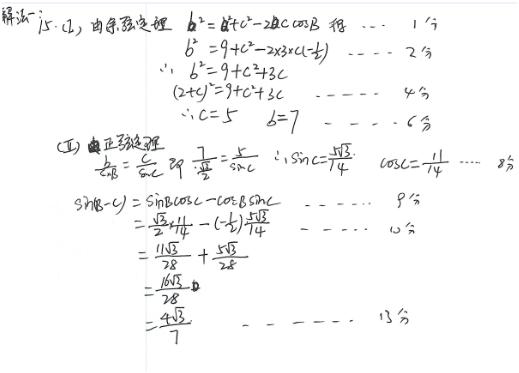 解法一 15.(I) 由余弦定理 b²=a²+c²-2accosB 得 ··· 1分
b²=9+c²-2×3×c(-1/2) ---- 2分
∴ b²=9+c²+3c
(2+c)²=9+c²+3c ----- 4分
∴c=5 b=7 ---- 6分
(II) 由正弦定理
b/sinB=c/sinC 即 7/(√3/2)=5/sinC ∴sinC=5√3/14 cosC=11/14 ···· 8分
sin(B-C)=sinBcosC-cosBsinC ------ 9分
=√3/2×11/14-(-1/2)5√3/14 ----- 10分
=11√3/28+5√3/28
=16√3/28
=4√3/7 ------- 13分